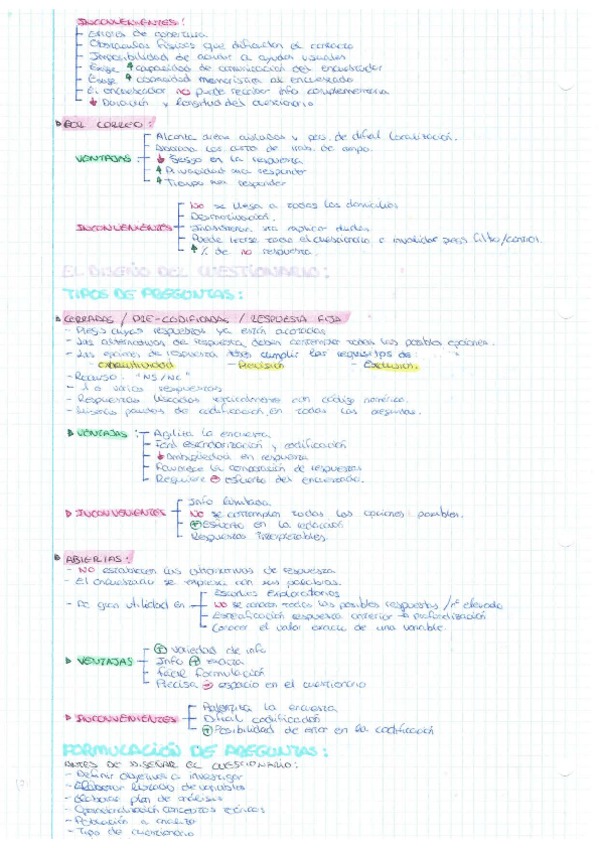 INCONVENIENTES:
- Errores de cobertura
- Obstáculos físicos que dificultan el contacto
- Imposibilidad de acudir a ayudas visuales
- Exige ↑ capacidad de comunicación del encuestador
- Exige ↑ capacidad memorística al encuestado
- El encuestador no puede recibir info complementaria
- ↓ Duración y longitud del cuestionario
POR CORREO:
- Alcanza áreas aisladas y pers. de difícil localización.
los costes de trab. de campo.
VENTAJAS: - ↓ Sesgo en la respuesta
- ↑ Privacidad para responder
- ↑ Tiempo para responder
- No se llega a todos los domicilios
- Desmotivación.
INCONVENIENTES - explicar dudas
- Puede leerse todo el cuestionario e invalidar pregs filtro/control.
- ↑ % de no respuesta.
EL DISEÑO DEL CUESTIONARIO:
TIPOS DE PREGUNTAS:
CERRADAS / PRE-CODIFICADAS / RESPUESTA FIJA
- Pregs cuyas respuestas ya están acotadas
- Las alternativas de respuesta deben contemplar todas las posibles opciones.
- Las opciones de respuesta deben cumplir los requisitos de:
- Exhaustividad - Precisión - Exclusión.
- Recurso: "NS/NC"
- 1 o varias respuestas
- Respuestas con código numérico.
- pautas de codificación en todas las preguntas.
VENTAJAS: - Agiliza la encuesta
- Fácil estandarización y codificación
- ↓ Ambigüedad en respuesta
- Favorece la comparación de respuestas
- Requiere ⊖ esfuerzo del encuestado.
- Info limitada
INCONVENIENTES - No se contemplan todas las opciones posibles.
- ⊕ Esfuerzo en la redacción
- Respuestas interpretables.
ABIERTAS:
- NO establecen las alternativas de respuesta
- El encuestado se expresa con sus palabras.
- Estudios Exploratorios
- De gran utilidad en - NO se conocen todas las posibles respuestas / nº elevado
- Especificación respuesta anterior → profundización
- Conocer el valor exacto de una variable.
- ⊕ variedad de info
VENTAJAS - Info ⊕ exacta
- Fácil formulación
- Precisa ⊖ espacio en el cuestionario
- la encuesta
INCONVENIENTES - Difícil codificación
- ⊕ Posibilidad de error en la codificación
FORMULACIÓN DE PREGUNTAS:
ANTES DE DISEÑAR EL CUESTIONARIO:
- Definir objetivos a investigar
- Elaborar listado de variables
- Elaborar plan de análisis
- Operacionalización conceptos teóricos
- Población a analizar
- Tipo de cuestionario